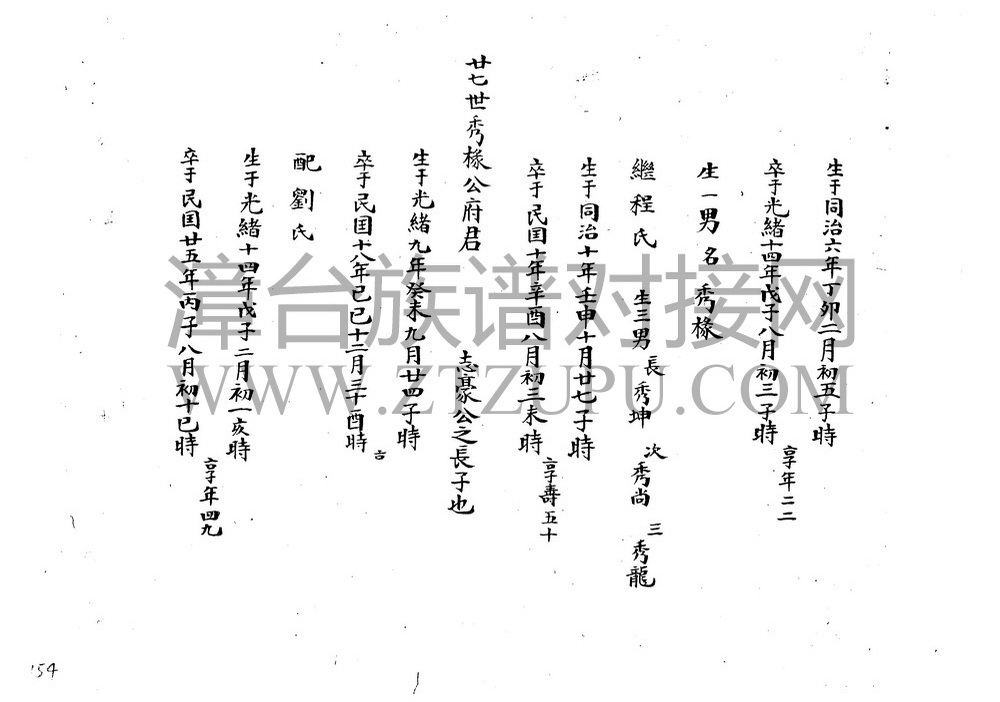 生于同治六年丁卯二月初五子時
卒于光緒十四年戊子八月初三子時 享年二二
生一男名秀椽
繼程氏 生三男長秀坤 次秀尚 三秀龍
生于同治十年壬申十月廿七子時
卒于民国十年辛酉八月初三未時 享壽五十
廿七世秀椽公府君 志豪公之長子也
生于光緒九年癸未九月廿四子時
卒于民国十八年己巳十二月三十酉時
配劉氏
生于光緒十四年戊子二月初一亥時
卒于民国廿五年丙子八月初十巳時 享年四九
漳台族谱对接网
WWW.ZTZUPU.COM
154